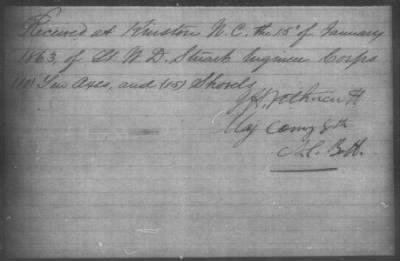 Received at Kinston N.C. the 15th of January
1863, of Lt. W. D. Stuart Engineer Corps
(10) Ten Axes, and (15) Shovels
Maj Comg 8th
N.C. Batt.